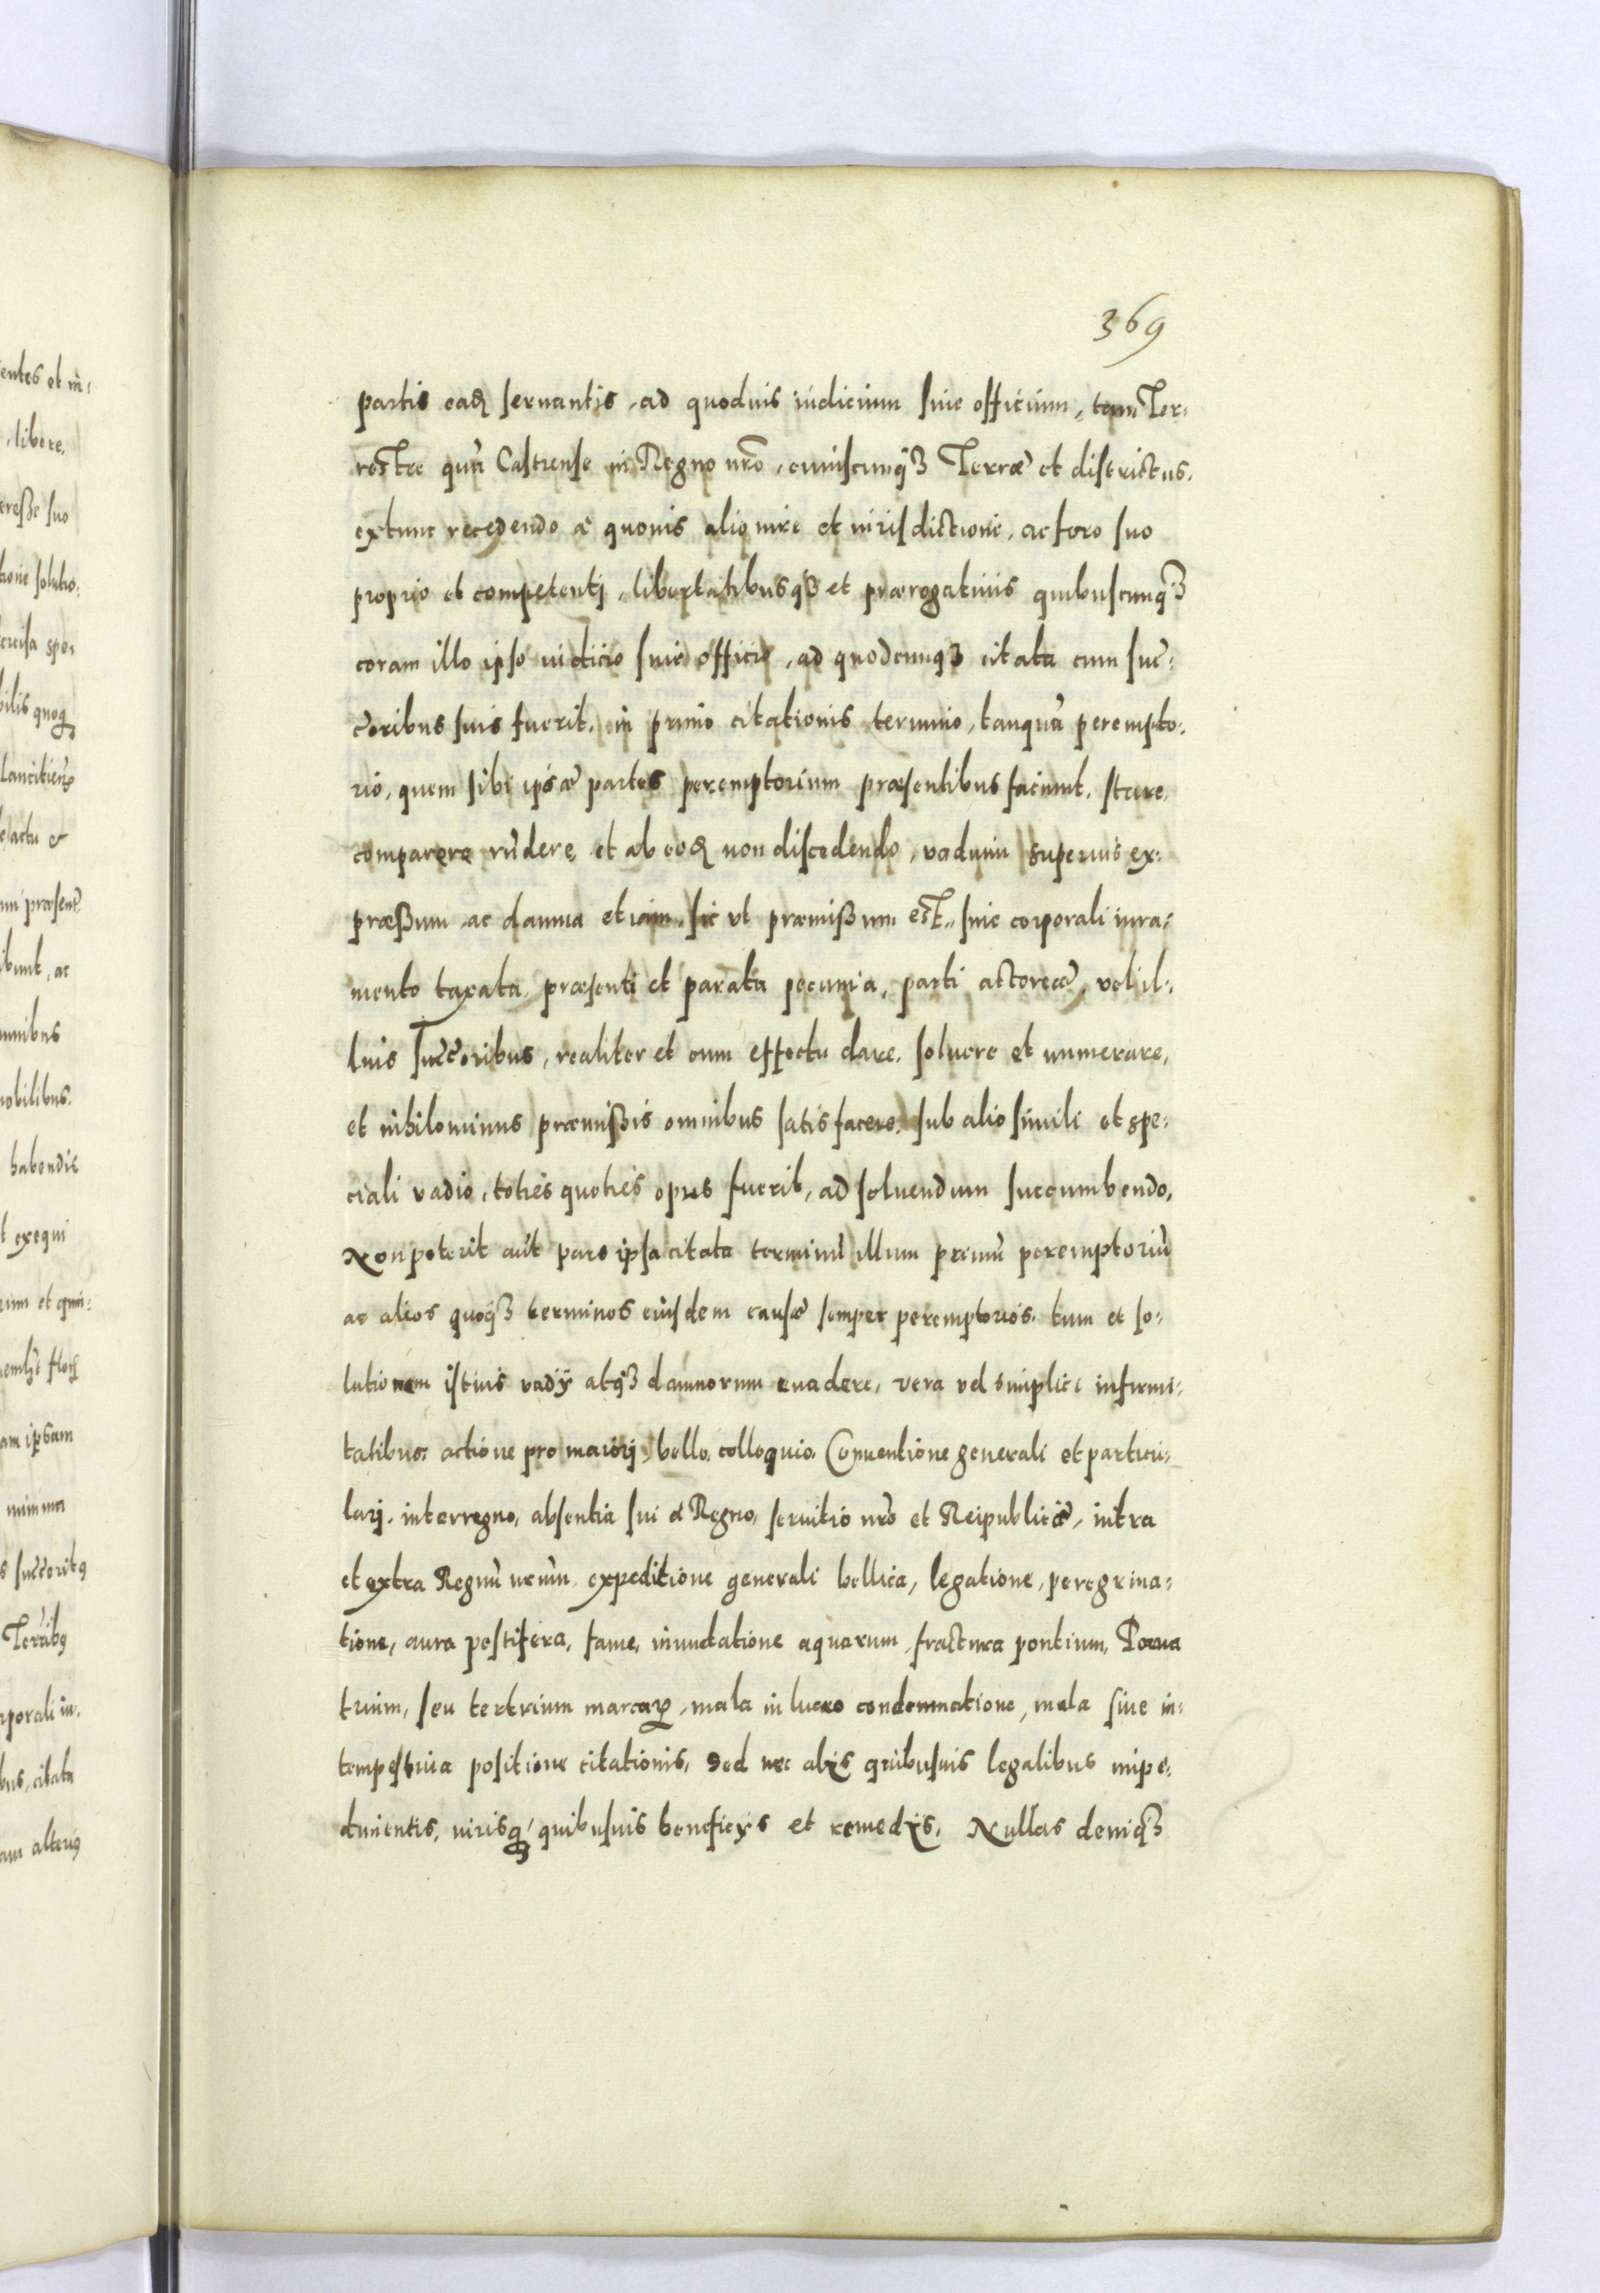 369
partis eadꝫ seruantis, ad quoduis iudicium siue officium, tam Ter:
restre qua᷉ Castrense in Regno nr̃o, cuiuscunqꝫ Terræ et districtus,
extunc recedendo a quouis alio iure et iurisdictione, ac foro suo
proprio et competentj, libertatibusqꝫ et prærogatiuis quibuscunqꝫ
coram illo ipso iudicio siue officio, ad quodcunqꝫ citata cum suc̃:
c̃oribus suis fuerit, in primo citationis termino, tanqua᷉ perempto:
rio, quem sibi ipsæ partes peremptorium præsentibus faciunt, stare,
comparere rñdere, et ab eodꝫ non discedendo, vadium superius ex:
præßum, ac damna etiam, sic vt præmißum est, siue corporali iura:
mento taxata, præsenti et parata pecunia, parti actoreæ, vel il:
lius suc̃c̃oribus, realiter et cum effectu dare, soluere et numerare,
et nihilominus præmißis omnibus satisfacere, sub alio simili et spe:
ciali vadio, toties quoties opus fuerit, ad soluendum succumbendo.
Non poterit aũt pars ipsa citata terminũ illum primũ peremptoriũ
ac alios quoqꝫ terminos eiusdem causæ semper peremptorios, tum et so:
lutionem istius vadÿ atqꝫ damnorum euadere, vera vel simplici infirmi:
tatibus, actione pro maiorj, bello, colloquio, Conuentione generali et particu:
larj, interregno, absentia sui a Regno, seruitio nr̃o et Reipublicæ, intra
et extra Regnũ nrũm, expeditione generali bellica, legatione, peregrina:
tione, aura pestifera, fame, inundatione aquarum, fractura pontium, Pœna
trium, seu tertrium marcaꝝ, mala in lucro condemnatione, mala siue in:
tempestiua positione citationis, sed nec alÿs quibusuis legalibus impe:
dimentis, iurisqꝫ quibusuis beneficÿs et remedÿs. Nullas deniqꝫ